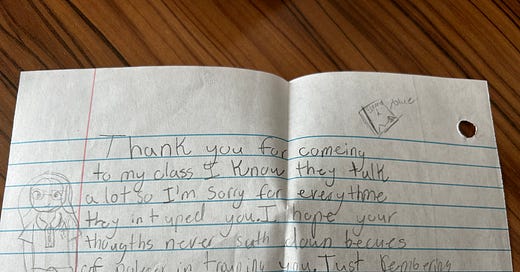 Thank you for comeing
to my class I Know they talk
a lot so I'm sorry for everythme
they intyped you. I hope your
thougths never suth down becues
of in you. Just